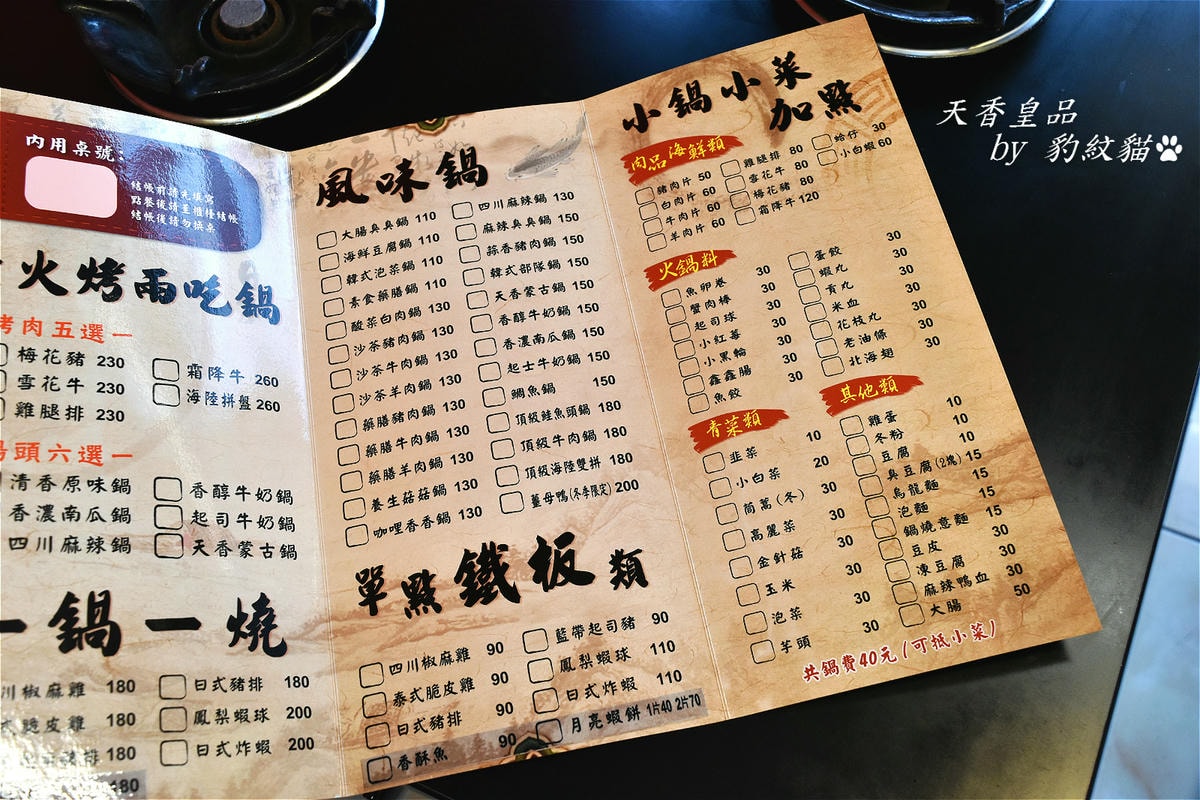 天香皇品
by 豹紋貓
內用桌號:
結帳前請先填寫
點餐後請至櫃檯結帳
結帳後請勿換桌
火烤兩吃鍋
烤肉五選一
梅花豬 230
霜降牛 260
雪花牛 230
海陸拼盤 260
雞腿排 230
湯頭六選一
清香原味鍋
香醇牛奶鍋
香濃南瓜鍋
起司牛奶鍋
四川麻辣鍋
天香蒙古鍋
一鍋一燒
川椒麻雞 180
日式豬排 180
脆皮雞 180
鳳梨蝦球 200
180
日式炸蝦 200
180
風味鍋
大腸臭臭鍋 110
海鮮豆腐鍋 110
韓式泡菜鍋 110
素食藥膳鍋 110
酸菜白肉鍋 130
沙茶豬肉鍋 130
沙茶牛肉鍋 130
沙茶羊肉鍋 130
藥膳豬肉鍋 130
藥膳牛肉鍋 130
藥膳羊肉鍋 130
養生菇菇鍋 130
咖哩香香鍋 130
四川麻辣鍋 130
麻辣臭臭鍋 150
蒜香豬肉鍋 150
韓式部隊鍋 150
天香蒙古鍋 150
香醇牛奶鍋 150
香濃南瓜鍋 150
起士牛奶鍋 150
鯛魚鍋 150
頂級鮭魚頭鍋 180
頂級牛肉鍋 180
頂級海陸雙拼 180
薑母鴨(冬季限定) 200
單點鐵板類
四川椒麻雞 90
泰式脆皮雞 90
日式豬排 90
香酥魚 90
藍帶起司豬 90
鳳梨蝦球 110
日式炸蝦 110
月亮蝦餅 1片40 2片70
小鍋小菜
加點
肉品海鮮類
豬肉片 50
白肉片 60
牛肉片 60
羊肉片 60
雞腿排 80
雪花牛 80
梅花豬 80
霜降牛 120
蛤仔 30
小白蝦 60
火鍋料
魚卵卷 30
蟹肉棒 30
起司球 30
小紅莓 30
小黑輪 30
鑫鑫腸 30
魚餃 30
蛋餃 30
蝦丸 30
貢丸 30
米血 30
花枝丸 30
老油條 30
北海翅 30
青菜類
韭菜 10
小白菜 20
茼萵(冬) 30
高麗菜 30
金針菇 30
玉米 30
泡菜 30
芋頭 30
其他類
雞蛋 10
冬粉 10
豆腐 10
臭豆腐(2塊) 15
烏龍麵 15
泡麵 15
鍋燒意麵 15
豆皮 30
凍豆腐 30
麻辣鴨血 30
大腸 50
共鍋費40元(可抵小菜)